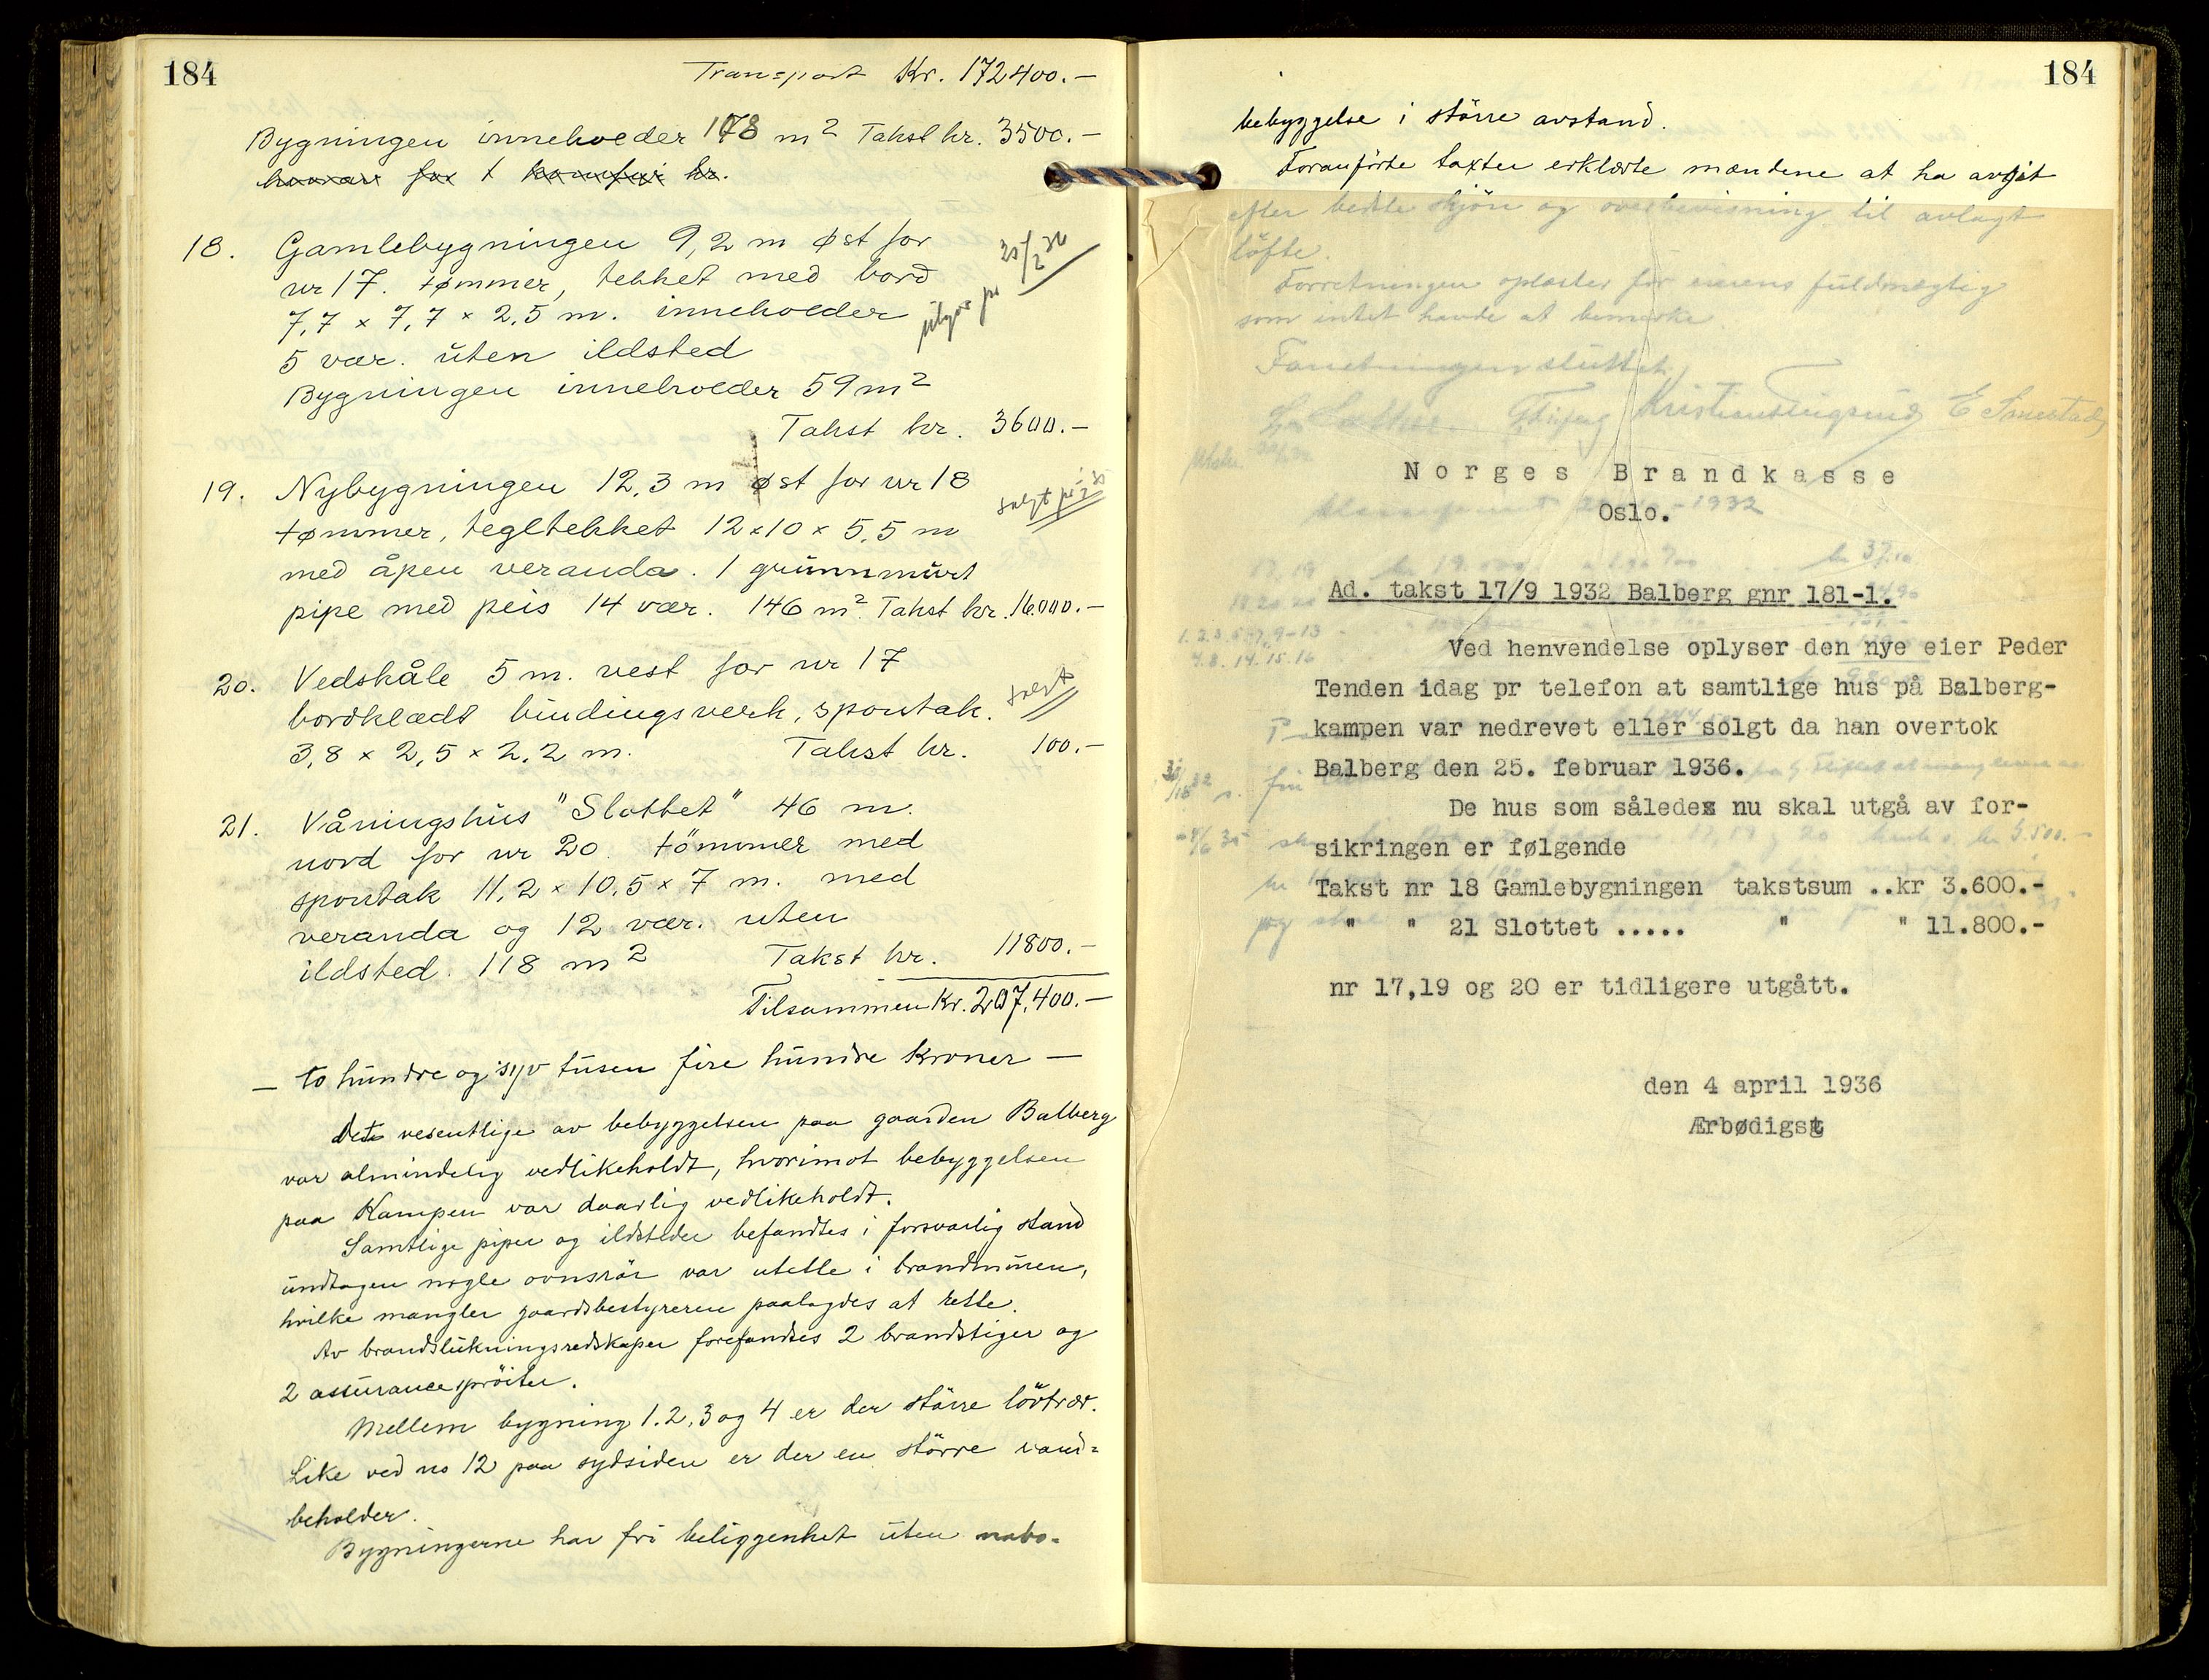 184
Transport Kr. 172400.-
Bygningen inneholder 178 m2 Takst kr. 3500.-
hvorav for 1 komfyr kr.
18. Gamlebygningen 9,2 m øst for
nr 17. tømmer, tekket med bord
7,7 x 7,7 x 2,5 m. inneholder
5 vær. uten ildsted
Bygningen inneholder 59 m2
Takst kr. 3600.-
utgår pr 25/2 36
19. Nybygningen 12,3 m øst for nr 18
tømmer, tegltekket 12 x 10 x 5,5 m
med åpen veranda. 1 grunnmurt
pipe med peis 14 vær. 146 m2. Takst kr. 16.000.-
solgt
20. Vedskåle 5 m. vest for nr 17
bordklædt bindingsverk, spontak.
3,8 x 2,5 x 2,2 m. Takst kr. 100.-
solgt
21. Våningshus "Slottet" 46 m.
nord for nr 20. tömmer med
spontak 11,2 x 10,5 x 7 m. med
veranda og 12 vær. uten
ildsted. 118 m2 Takst kr. 11800.-
Tilsammen Kr. 207.400.-
- to hundre og syv tusen fire hundre kroner -
Det vesentlige av bebyggelsen paa gaarden Balberg
var almindelig vedlikeholdt, hvorimot bebyggelsen
paa Kampen var daarlig vedlikeholdt.
Samtlige piper og ildsteder befandtes i forsvarlig stand
undtagen nogle ovnsrör var utette i brandmuren,
hvilke mangler gaardsbestyreren paalagdes at rette.
Av brandslukningsredskaper forefandtes 2 brandstiger og
2 assurancespröiter.
Mellem bygning 1. 2, 3 og 4 er der större lövtrær.
Like ved no 12 paa sydsiden er der en större vand=
beholder.
Bygningerne har fri beliggenhet uten nabo-
184
bebyggelse i större avstand.
Foranförte taxter erklærte mændene at ha avgit
efter bedste skjön og overbevisning til avlagt
löfte.
Forretningen oplæstes for eierens fuldmægtig
som intet havde at bemerke.
Forretningen sluttet.
Kristian Lingsund E Smestad
Norges Brandkasse
Oslo.
Ad. takst 17/9 1932 Balberg gnr 181-1.
Ved henvendelse oplyser den nye eier Peder
Tenden idag pr telefon at samtlige hus på Balberg-
kampen var nedrevet eller solgt da han overtok
Balberg den 25. februar 1936.
De hus som således nu skal utgå av for-
sikringen er følgende
Takst nr 18 Gamlebygningen takstsum ..kr 3.600.-
" " 21 Slottet ..... " " 11.800.-
nr 17,19 og 20 er tidligere utgått.
den 4 april 1936
Ærbødigst